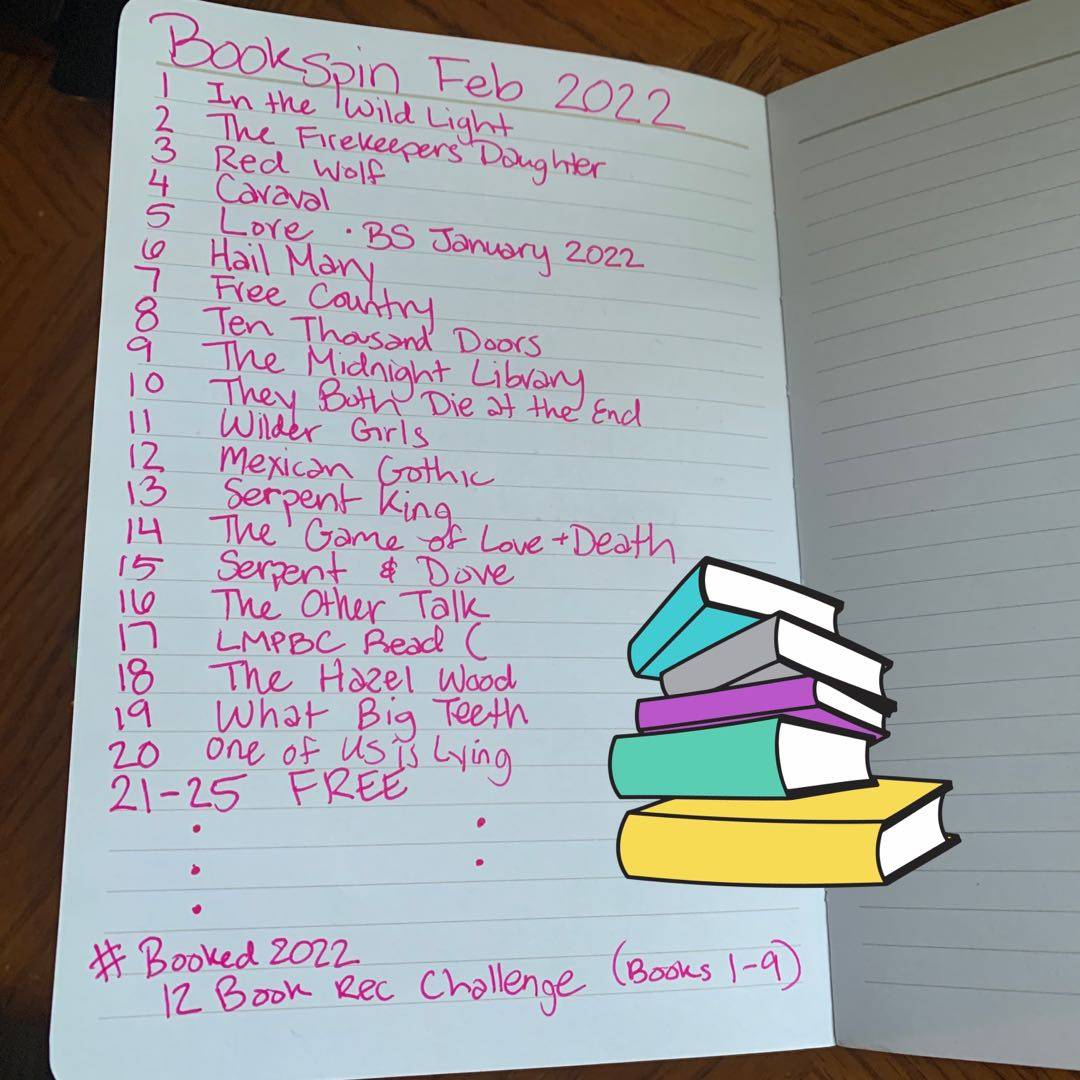 Bookspin Feb 2022
1 In the Wild Light
2 The Firekeepers Daughter
3 Red Wolf
4 Caraval
5 Lore · BS January 2022
6 Hail Mary
7 Free Country
8 Ten Thousand Doors
9 The Midnight Library
10 They Both Die at the End
11 Wilder Girls
12 Mexican Gothic
13 Serpent King
14 The Game of Love + Death
15 Serpent & Dove
16 The Other Talk
17 LMPBC Read (
18 The Hazel Wood
19 What Big Teeth
20 One of Us is Lying
21-25 FREE
# Booked 2022
12 Book Rec Challenge (Books 1-9)